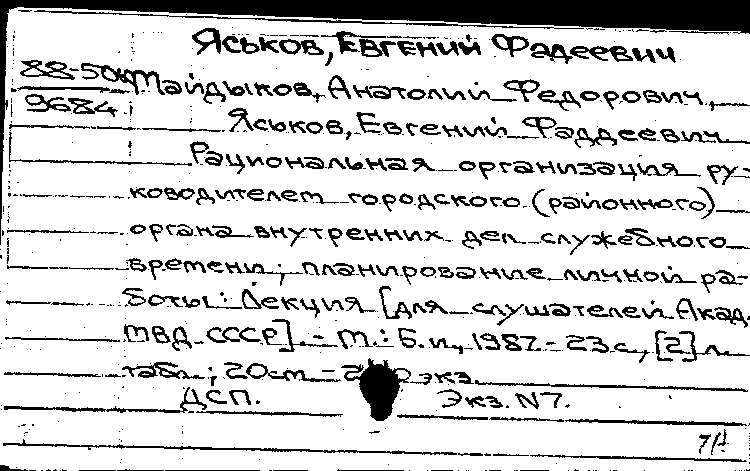 Яськов, Евгений Фадеевич
88-50к Майдыков, Анатолий Федорович,
9684
Яськов, Евгений Фаддеевич
Рациональная организация ру-
ководителем городского (районного)
органа внутренних дел служебного
времени; планирование личной ра-
боты: Лекция [для слушателей Акад.
МВД СССР]. - М.: Б.и., 1987 - 23 с., [2] л.
табл; 20см - экз.
ДСП. Экз. N7.